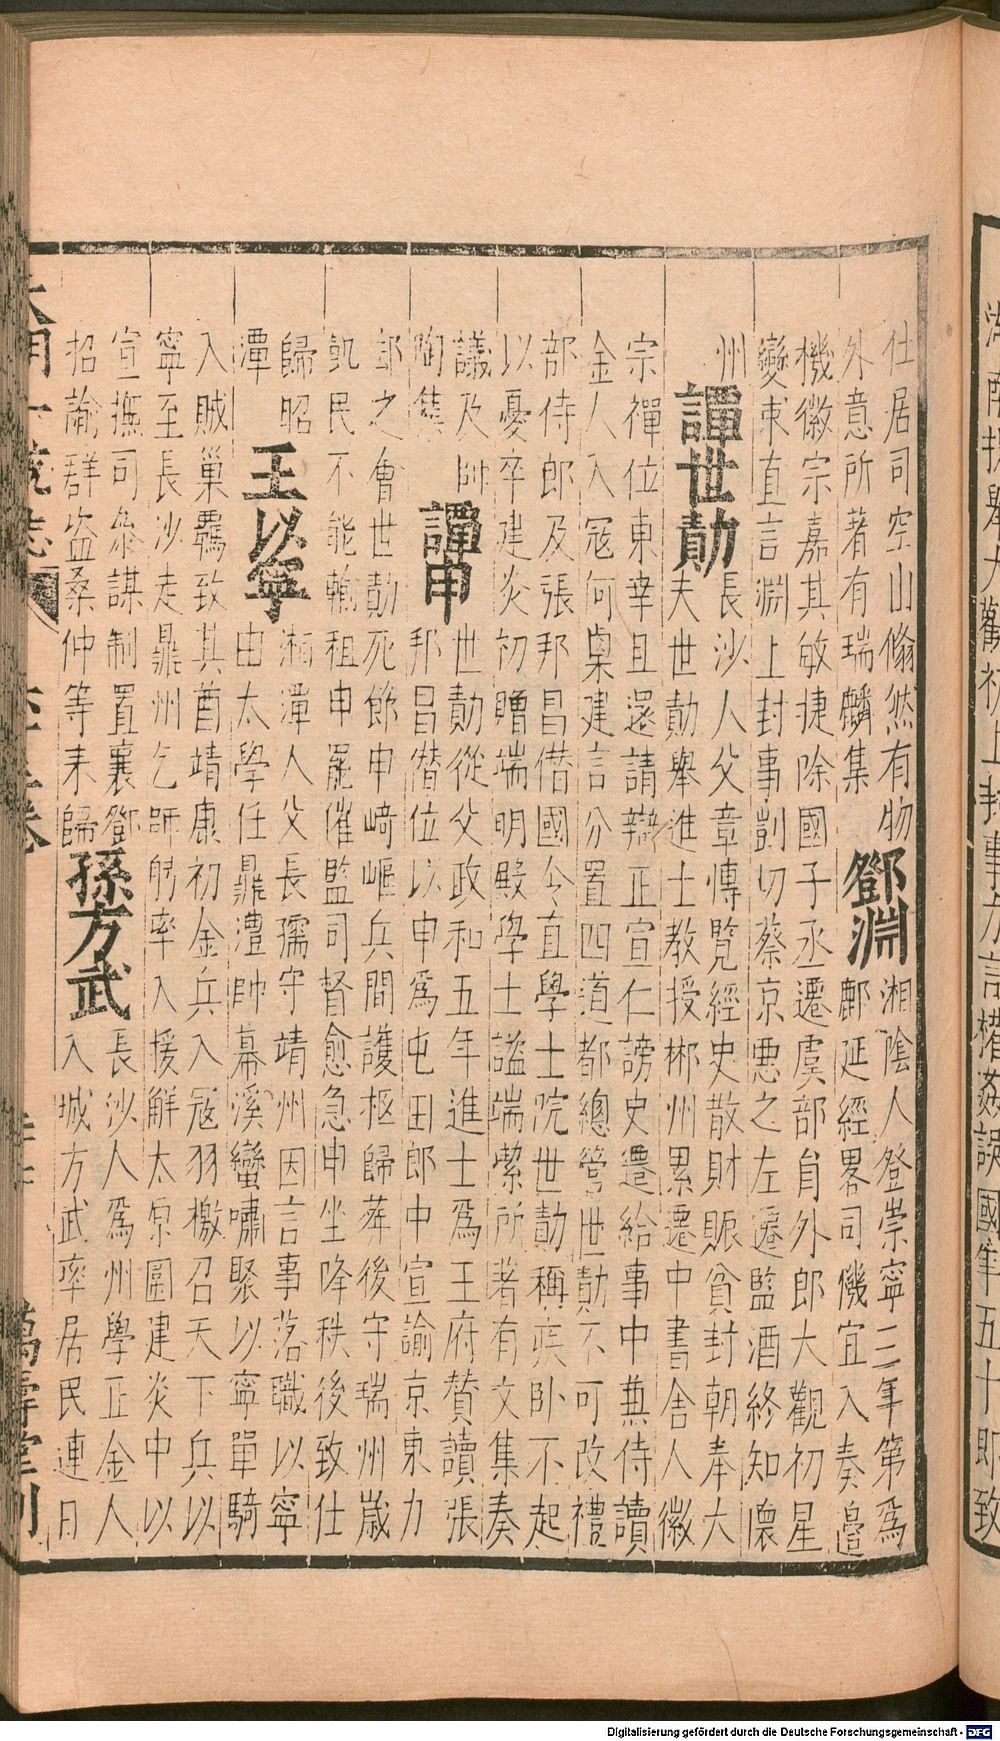 湖南提舉大觀初上封事力言權姦誤國年五十即致
仕居司空山翛然有物
外意所著有瑞麟集
鄧淵
湘陰人登崇寧三年第爲
鄜延經畧司僟宜入奏邉
機徽宗嘉其敏捷除國子丞遷虞部貟外郎大觀初星
變朿直言淵上封事剴切蔡京惡之左遷監酒終知懷
州
譚世勣
長沙人父章慱覧經史散財賑貧封朝奉大
夫世勣舉進士教授郴州累遷中書舍人徽
宗禪位東幸且還請辯正宣仁謗史遷給事中兼侍讀
金人入冦何㮚建言分置四道都總管世勣不可改禮
部侍郎及張邦昌僣國令直學士院世勣稱疾卧不起
以憂卒建炎初贈端明殿學士謚端潔所著有文集奏
議及師
陶集
譚申
世勣從父政和五年進士爲王府賛讀張
邦昌僣位以申爲屯田郎中宣諭京東力
鄙之會世勣死節申﨑嶇兵間護柩歸葬後守瑞州歳
飢民不能輸租申罷催監司督愈急申坐降秩後致仕
歸昭
潭
王以寧
湘潭人父長孺守靖州因言事落職以寧
由太學任鼎澧帥幕溪蠻嘯聚以寧單騎
入賊巢覊致其酋靖康初金兵入冦羽檄召天下兵以
寧至長沙走鼎州乞師躬率入援解太原圍建炎中以
宣撫司叅謀制置襄鄧
招諭群盗桑仲等来歸
孫方武
長沙人爲州學正金人
入城方武率居民連日
大明一統志
萬壽堂刊
Digitalisierung gefördert durch die Deutsche Forschungsgemeinschaft - DFG